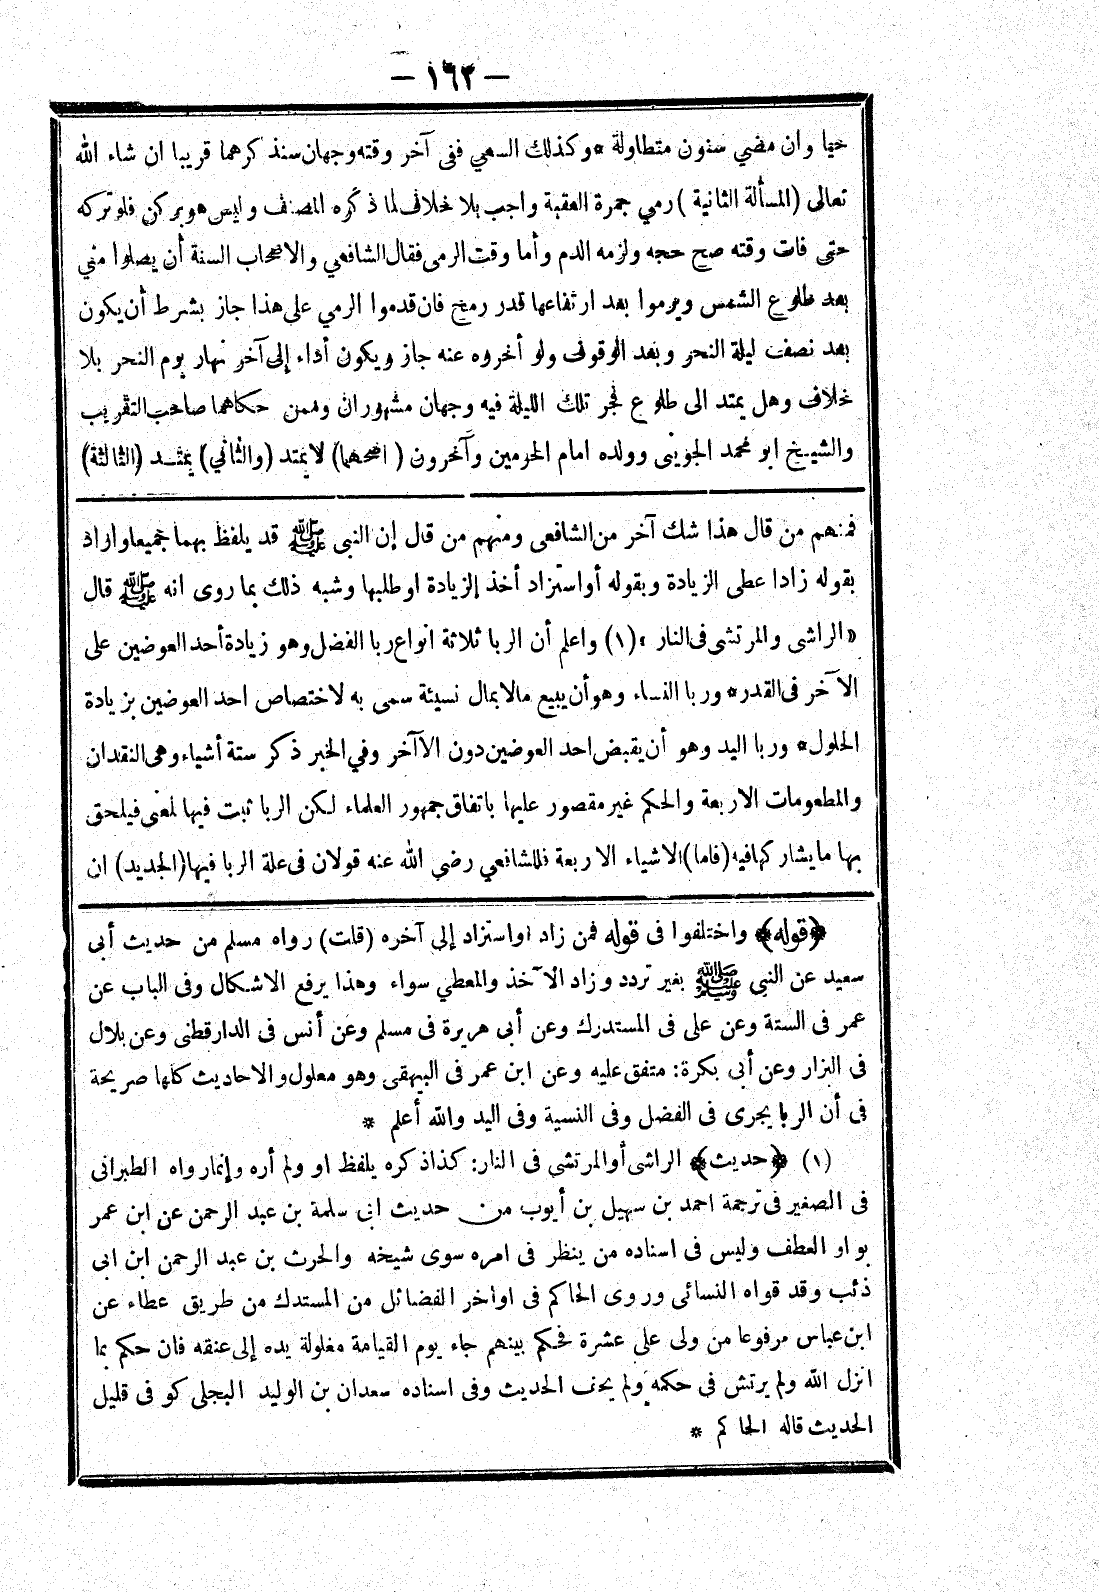 — ١٦٢ —
حيا وان مضي سنون متطاولة * وكذلك السعي ففى آخر وقته وجهان سنذكرهما قريبا ان شاء الله
تعالى (المسألة الثانية) رمي جمرة العقبة واجب بلا خلاف لما ذكره المصنف وليس هو بركن فلو تركه
حتى فات وقته صح حجه ولزمه الدم وأما وقت الرمى فقال الشافعي والاصحاب السنة أن يصلوا مني
بعد طلوع الشمس ويرموا بعد ارتفاعها قدر رمح فان قدموا الرمي على هذا جاز بشرط أن يكون
بعد نصف ليلة النحر وبعد الوقوف ولو أخروه عنه جاز ويكون أداء إلى آخر نهار يوم النحر بلا
خلاف وهل يمتد الى طلوع فجر تلك الليلة فيه وجهان مشهوران وممن حكاهما صاحب التقريب
والشيخ ابو محمد الجوينى وولده امام الحرمين وآخرون (اصحهما) لا يمتد (والثاني) يمتد (الثالثة)
فمنهم من قال هذا شك آخر من الشافعى ومنهم من قال إن النبى ﷺ قد يلفظ بهما جميعا واراد
بقوله زادا عطى الزيادة وبقوله أو استزاد أخذ الزيادة او طلبها وشبه ذلك بما روى انه ﷺ قال
«الراشى والمرتشى فى النار» (١) واعلم أن الربا ثلاثة انواع ربا الفضل وهو زيادة أحد العوضين على
الآخر فى القدر * وربا النساء وهو أن يبيع مالا بمال نسيئة سمى به لاختصاص احد العوضين بزيادة
الحلول * وربا اليد وهو أن يقبض احد العوضين دون الآخر وفي الخبر ذكر ستة أشياء وهى النقدان
والمطعومات الاربعة والحكم غير مقصور عليها باتفاق جمهور العلماء لكن الربا ثبت فيها لمعنى فيلحق
بها ما يشاركها فيه (فاما) الاشياء الاربعة فللشافعي رضي الله عنه قولان فى علة الربا فيها (الجديد) ان
﴿قوله﴾ واختلفوا فى قوله فمن زاد او استزاد إلى آخره (قلت) رواه مسلم من حديث أبى
سعيد عن النبى ﷺ بغير تردد وزاد الآخذ والمعطي سواء وهذا يرفع الاشكال وفى الباب عن
عمر فى الستة وعن على فى المستدرك وعن أبى هريرة فى مسلم وعن أنس فى الدارقطنى وعن بلال
فى البزار وعن أبى بكرة: متفق عليه وعن ابن عمر فى البيهقى وهو معلول والاحاديث كلها صريحة
فى أن الربا يجرى فى الفضل وفى النسية وفى اليد والله أعلم *
(١) ﴿حديث﴾ الراشى أو المرتشى فى النار: كذا ذكره بلفظ او ولم أره وإنما رواه الطبرانى
فى الصغير فى ترجمة احمد بن سهيل بن أيوب من حديث ابى سلمة بن عبد الرحمن عن ابن عمر
بواو العطف وليس فى اسناده من ينظر فى امره سوى شيخه والحرث بن عبد الرحمن ابن ابى
ذئب وقد قواه النسائى وروى الحاكم فى اواخر الفضائل من المستدك من طريق عطاء عن
ابن عباس مرفوعا من ولى على عشرة فحكم بينهم جاء يوم القيامة مغلولة يده إلى عنقه فان حكم بما
انزل الله ولم يرتش فى حكمه ولم يحف الحديث وفى اسناده سعدان بن الوليد البجلى كو فى قليل
الحديث قاله الحاكم *